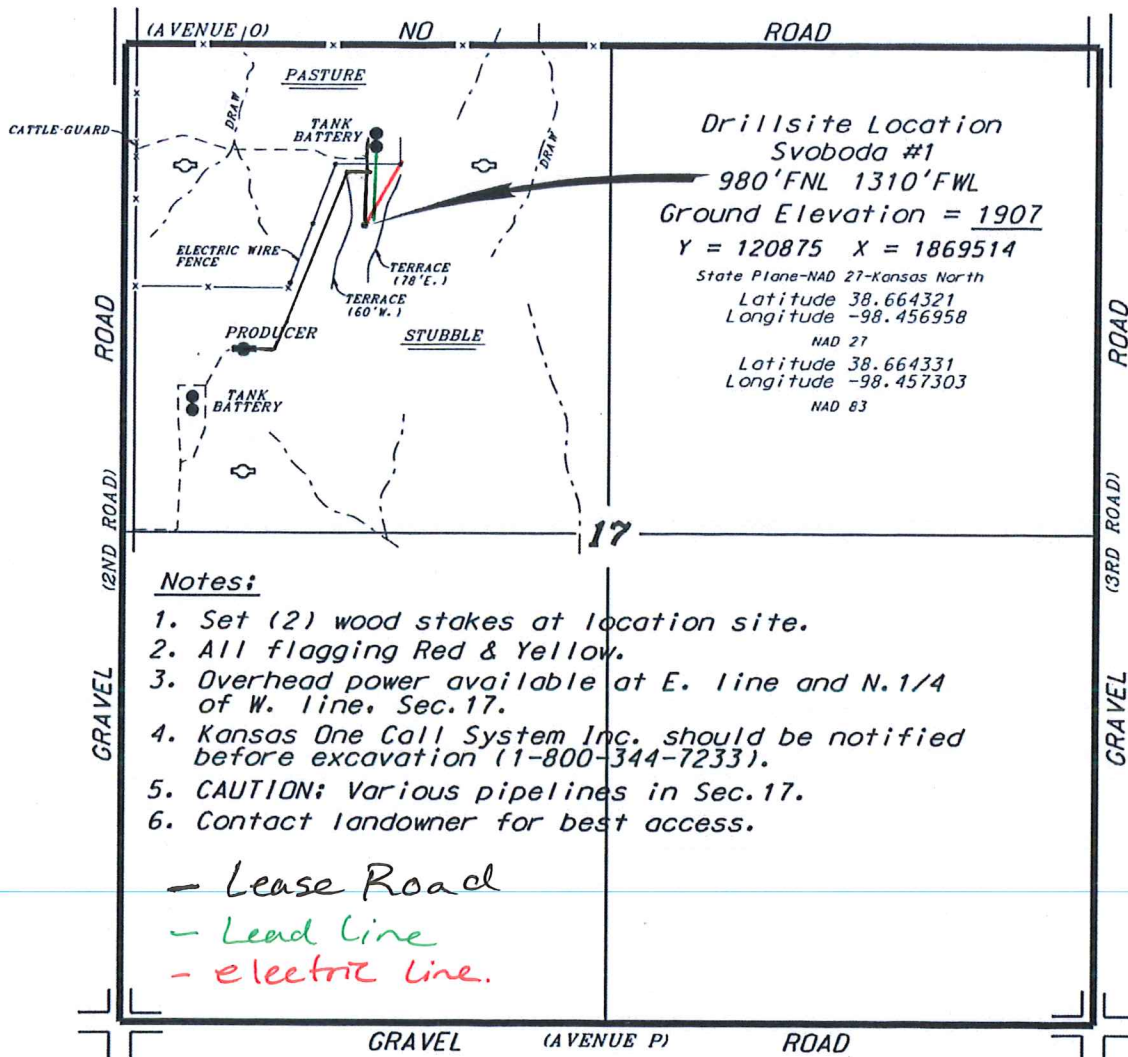 (AVENUE O) NO ROAD
PASTURE
DRAW
CATTLE-GUARD
TANK
BATTERY
DRAW
ELECTRIC WIRE
FENCE
TERRACE
(78'E.)
TERRACE
(60'W.)
PRODUCER
STUBBLE
TANK
BATTERY
Drillsite Location
Svoboda #1
980'FNL 1310'FWL
Ground Elevation = 1907
Y = 120875 X = 1869514
State Plane-NAD 27-Kansas North
Latitude 38.664321
Longitude -98.456958
NAD 27
Latitude 38.664331
Longitude -98.457303
NAD 83
17
GRAVEL (2ND ROAD) ROAD
GRAVEL (3RD ROAD) ROAD
Notes:
1. Set (2) wood stakes at location site.
2. All flagging Red & Yellow.
3. Overhead power available at E. line and N.1/4
of W. line, Sec.17.
4. Kansas One Call System Inc. should be notified
before excavation (1-800-344-7233).
5. CAUTION: Various pipelines in Sec.17.
6. Contact landowner for best access.
- Lease Road
- Lead Line
- electric Line.
GRAVEL (AVENUE P) ROAD